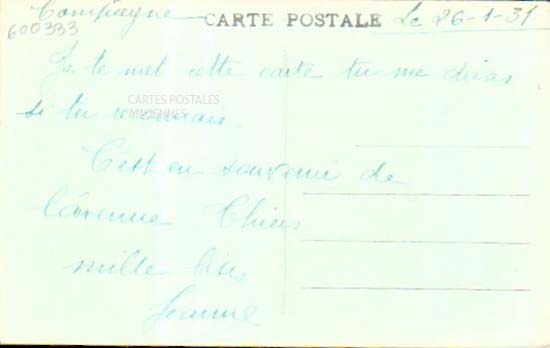 Compiegne CARTE POSTALE Le 26-1-31
600333
Je te met cette carte tu me diras
CARTES POSTALES
ANCIENNES
si tu
C'est en souvenir de
l'avenue Thiers
mille bises
Jeanne